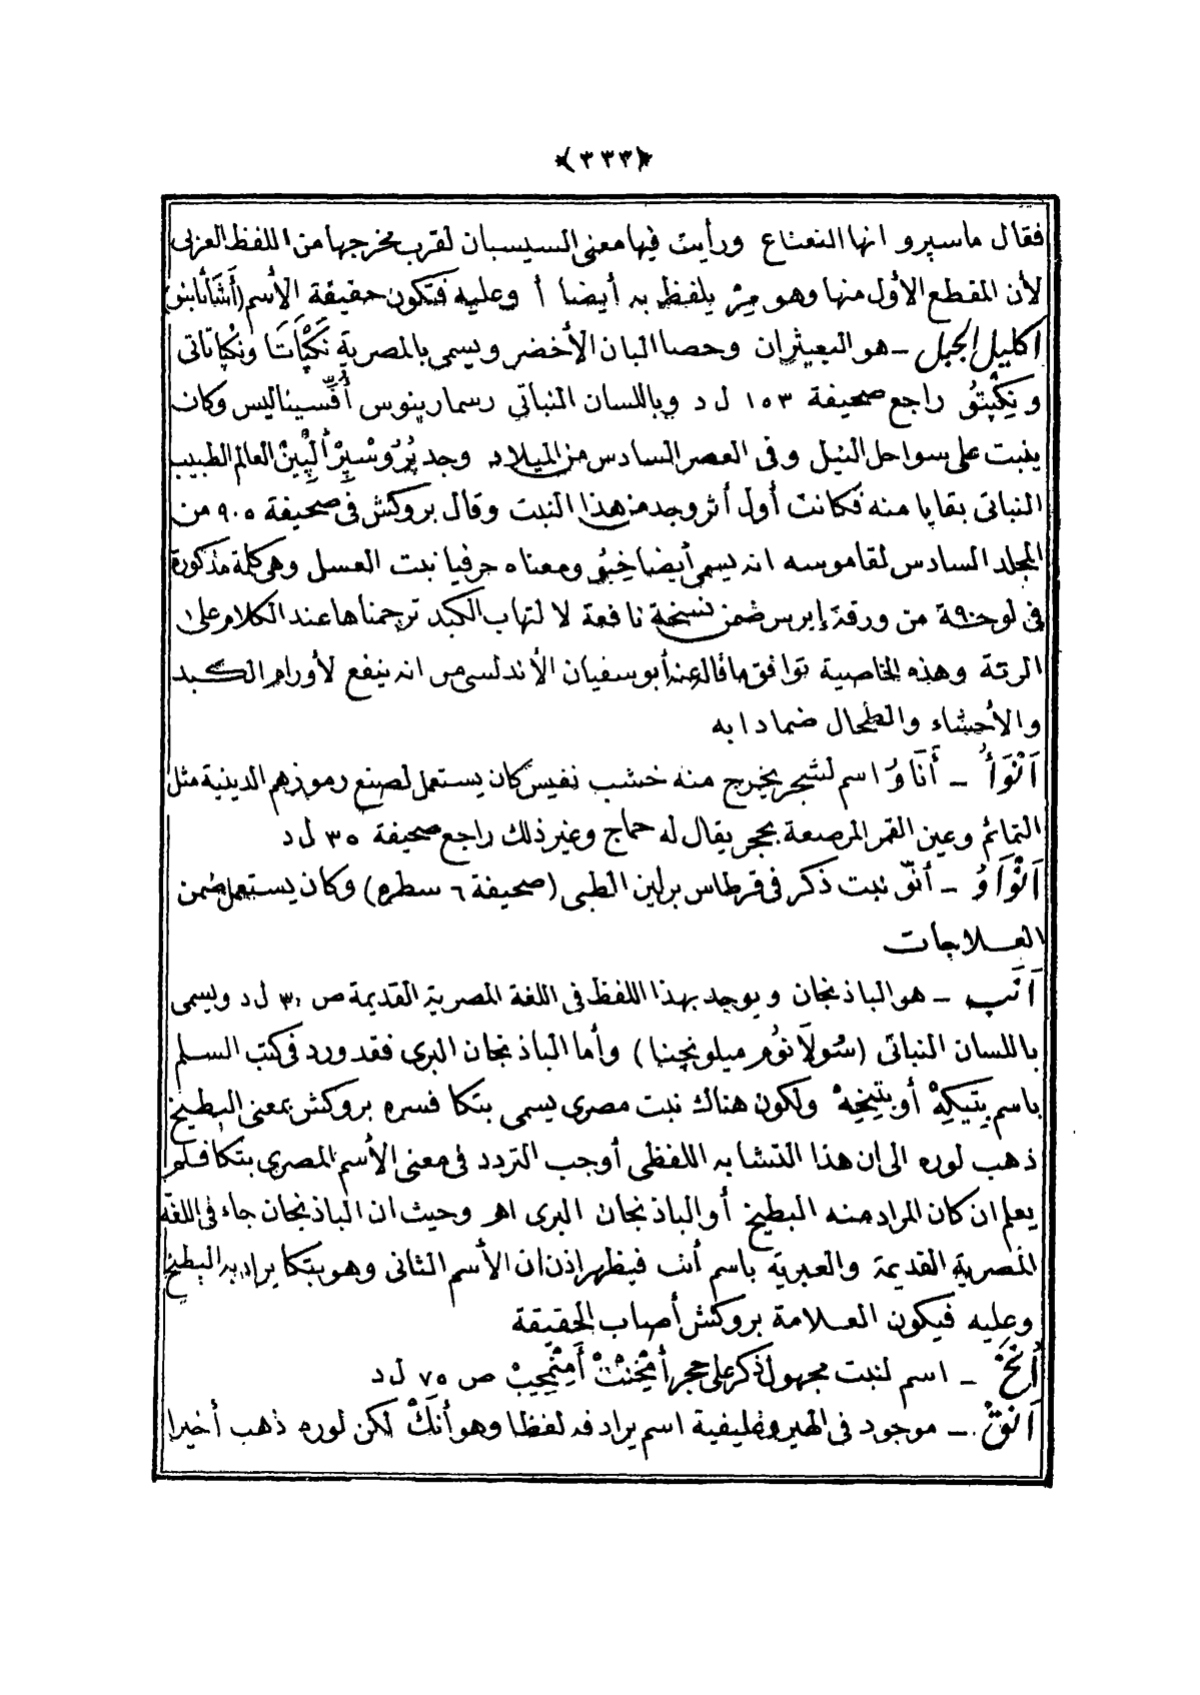 ﴿٣٣٣﴾
فقال ماسپرو انها النعناع ورأيت فيها معنى السيسبان لقرب مخرجها من اللفظ العربى
لأن المقطع الأول منها وهو مِرْ يلفظ به أيضا أ وعليه فتكون حقيقة الأسم
اكليل الجبل – هو البعيثران وحصا البان الأخضر ويسمى بالمصرية نَكَپْأَتَا ونُكپاتاتى
ونِكْپِتُو راجع صحيفة ١٥٣ ل د وباللسان النباتى رسمارينوس أُفِّسيناليس وكان
ينبت على سواحل النيل وفى العصر السادس من الميلاد وجد پُرُوسْپِرْ أَلْپِينْ العالم الطبيب
النباتى بقايا منه فكانت أول أثر وجد من هذا النبت وقال بروكش فى صحيفة ٩٠٥ من
المجلد السادس لقاموسه انه يسمى أيضا ومعناه حرفيا نبت العسل وهى كلمة مذكورة
فى لوحة ٩٠ من ورقة إيبرس ضمن نسخة نافعة لالتهاب الكبد ترجمناها عند الكلام على
الرتة وهذه الخاصية توافق ما قاله عنه أبو سفيان الأندلسى من انه ينفع لأورام الكبد
والأحشاء والطحال ضمادا به
آنْوَأُ – أَنَاوُ اسم لشجر يخرج منه خشب نفيس كان يستعمل لصنع رموزهم الدينية مثل
التمائم وعين القمر المرصعة بحجر يقال له حماج وغير ذلك راجع صحيفة ٣٥ ل د
آنْوَاوُ – أنوّ نبت ذكر فى قرطاس برلين الطبى (صحيفة ٦ سطر ٥) وكان يستعمل ضمن
العلاجات
آنَب – هو الباذنجان ويوجد بهذا اللفظ فى اللغة المصرية القديمة ص ٣٠ ل د ويسمى
باللسان النباتى (سُولَانُوم ميلونچينا) وأما الباذنجان البرى فقد ورد فى كتب السلم
باسم پِتِيكِهْ أو پتِيخِهْ ولكون هناك نبت مصرى يسمى بتكا فسره بروكش بمعنى البطيخ
ذهب لوره الى ان هذا التشابه اللفظى أوجب التردد فى معنى الأسم المصرى بتكا فلم
يعلم ان كان المراد منه البطيخ أو الباذنجان البرى اهـ وحيث ان الباذنجان جاء فى اللغة
المصرية القديمة والعبرية باسم أنب فيظهر اذن ان الأسم الثانى وهو بتكا يراد به البطيخ
وعليه فيكون العلامة بروكش أصاب الحقيقة
أُنْخَ – اسم لنبت مجهول ذكر على حجر أمِّخِنْتْ أَمِنْمِحِيبْ ص ٧٥ ل د
آنَقْ – موجود فى الهيروغليفية اسم يرادفه لفظا وهو أَنَكْ لكن لوره ذهب أخيرا